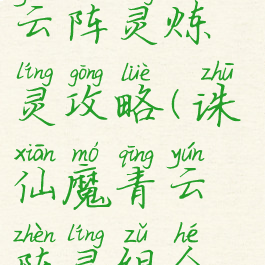 云阵灵炼
líng gōng lüè zhū
灵攻略(诛
xiān mó qīng yún
仙魔青云
zhèn líng zǔ hé
阵灵组合